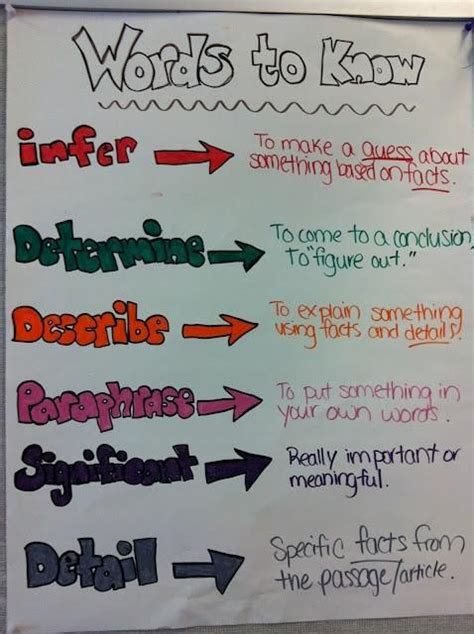 Words to Know
infer
To make a guess about
something based on facts.
Determine
To come to a conclusion,
to "figure out."
Describe
To explain something
using facts and details!
Paraphrase
To put something in
your own words.
Significant
Really important or
meaningful.
Detail
Specific facts from
the passage/article.